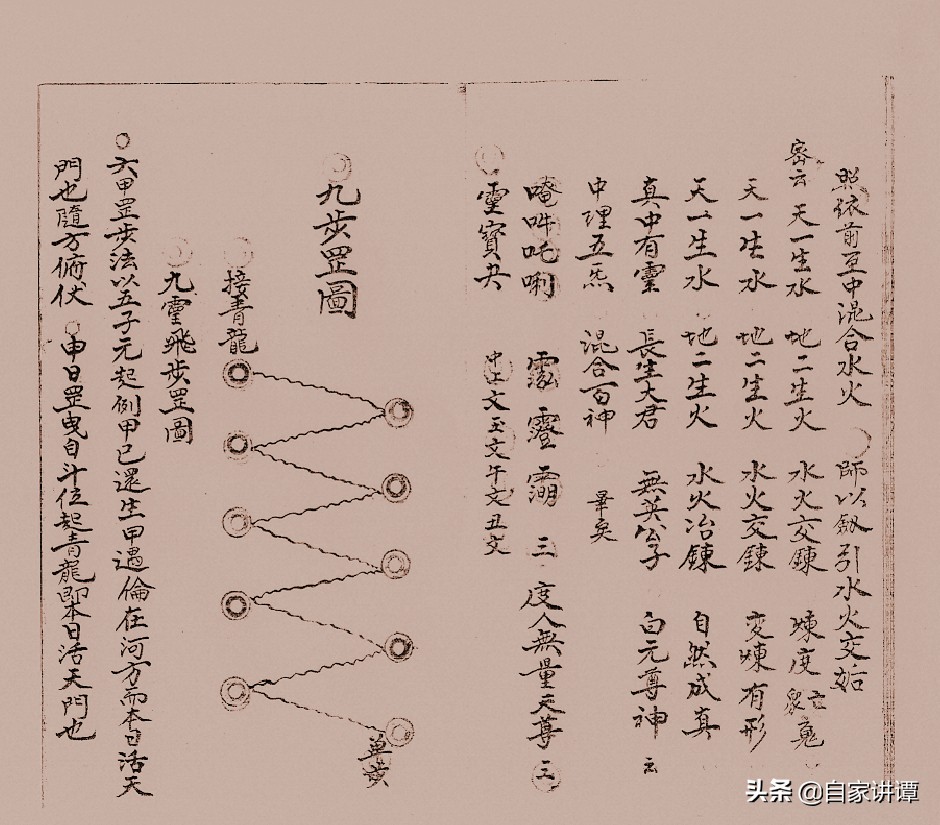 照依前互中混合水火 師以劔引水火交姤
密云 天一生水 地二生火 水火交鍊 煉度
天一生水 地二生火 水火交鍊 変煉有形
天一生水 地二生火 水火冶鍊 自然成真
真中有靈 長生大君 無英公子 白元尊神 云
中理五炁 混合百神 畢矣
唵吽吒唎 三 度人無量天尊 三
靈寶
文玉文午文丑文
九步罡圖
接青龍
九靈飛步罡圖
六甲罡步法以五子元起例甲己還生甲遇倫在河方而本日活天
門也隨方俯伏 申日罡曳自斗位起青龍即本日活天門也
头条 @自家讲谭